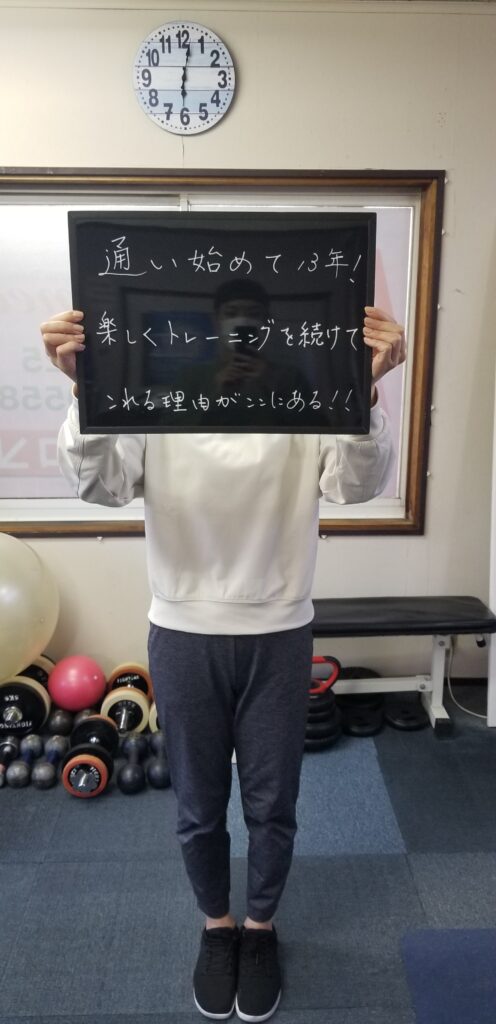 12
1
2
3
4
5
6
7
8
9
10
11
通い始めて13年!
楽しくトレーニングを続けて
これる理由がここにある!!
5KG